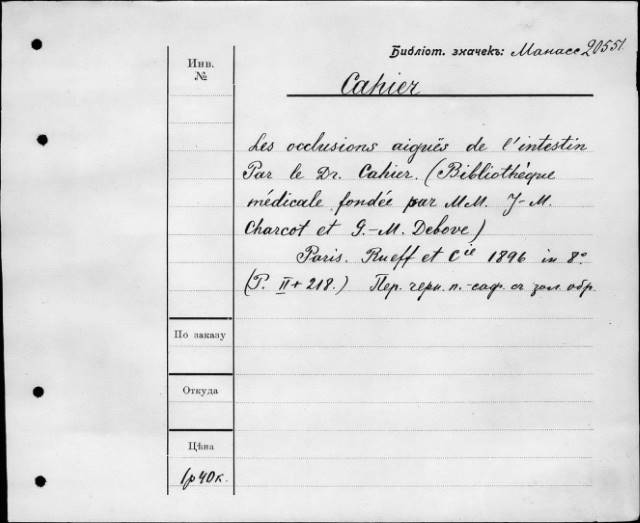 Библіот. значекъ: Манасс 20551.
Инв.
№
Cahier
Les occlusions aiguës de l'intestin
Par le Dr. Cahier. (Bibliothèque
médicale fondée par MM. J-M.
Charcot et G.-M. Debove)
Paris. Rueff et Cie 1896 in 8°
(P. II + 218.) Пер. черн. п.-саф. съ зол. обр.
По заказу
Откуда
Цѣна
1р 40к.